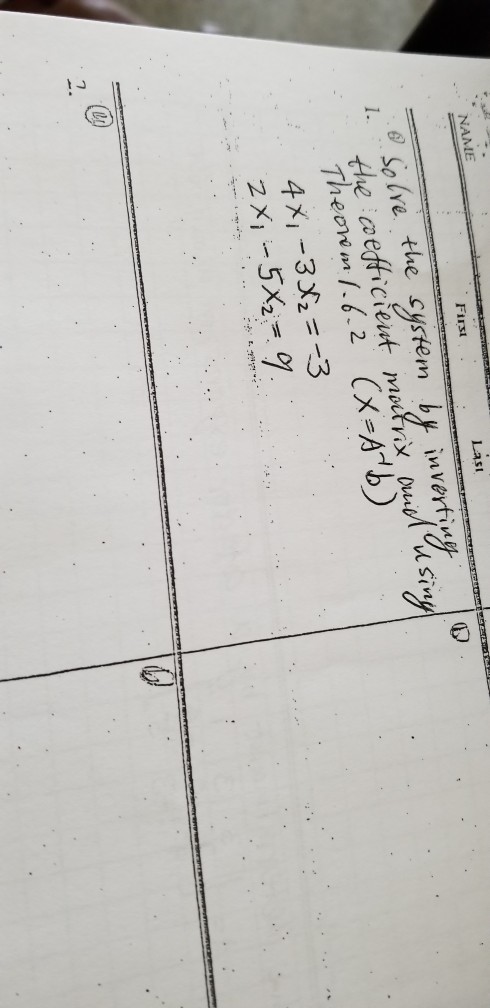 NAME First Last
1. ⓐ Solve the system by inverting
the coefficient matrix and using
Theorem 1.6.2 (X = A⁻¹b)
4x₁ - 3x₂ = -3
2x₁ - 5x₂ = 9
ⓑ
2. ⓐ
ⓑ